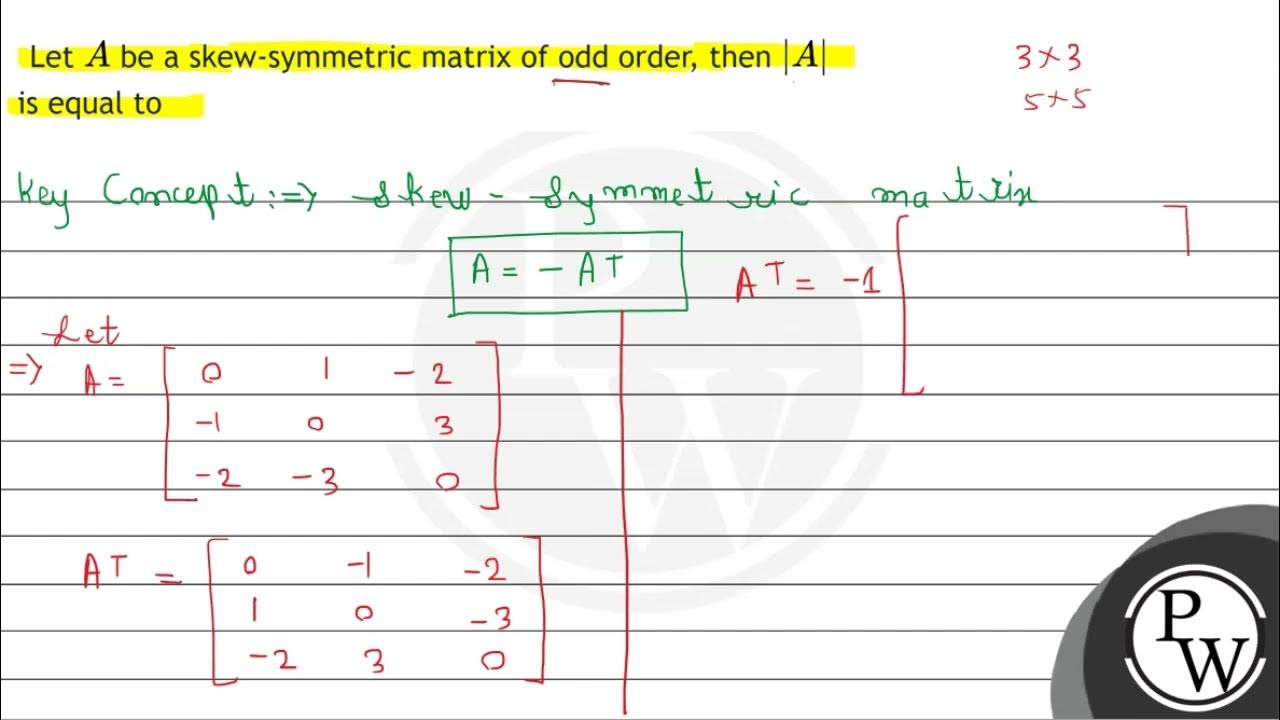 Let A be a skew-symmetric matrix of odd order, then |A|
is equal to
3×3
5×5
Key Concept :⇒ Skew - Symmetric matrix
A = - Aᵀ
Aᵀ = -1 [ ]
Let
⇒ A = [ 0 1 -2
-1 0 3
-2 -3 0 ]
Aᵀ = [ 0 -1 -2
1 0 -3
-2 3 0 ]
PW
PW